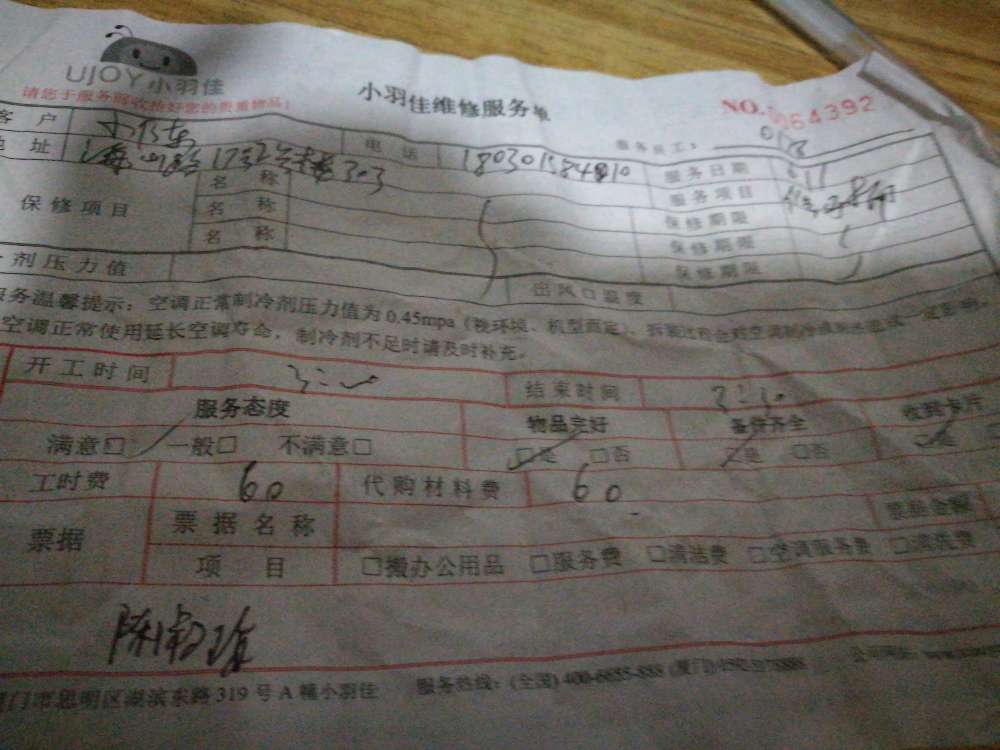 UJOY小羽佳
小羽佳维修服务单
NO. 0064392
请您于服务前收拾好您的贵重物品！
服务员工：018
客户 电话 服务日期 611
地址 303 服务项目
保修项目 名称 保修期限
名称 保修期限
名称 保修期限
剂压力值 出风口温度
服务温馨提示：空调正常制冷剂压力值为0.45mpa（视环境、机型而定）、拆装过程会对空调制冷
空调正常使用延长空调寿命，制冷剂不足时请及时补充。
开工时间 3:00 结束时间 3:30
服务态度 物品完好 备件齐全 收到卡片
满意□ 一般□ 不满意□ □是 □否 □是 □否 □是
工时费 60 代购材料费 60
票据 票据名称 票据金额
项目 □搬办公用品 □服务费 □清洁费 □空调服务费 □清洗费
门市思明区湖滨东路319号A幢小羽佳 服务热线：(全国) 400-6655-888 (厦门)